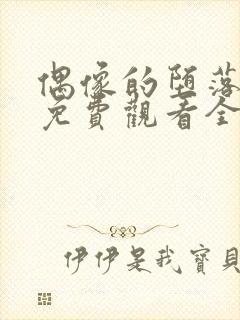 偶像的堕落
免費觀看全
伊伊是我寶貝